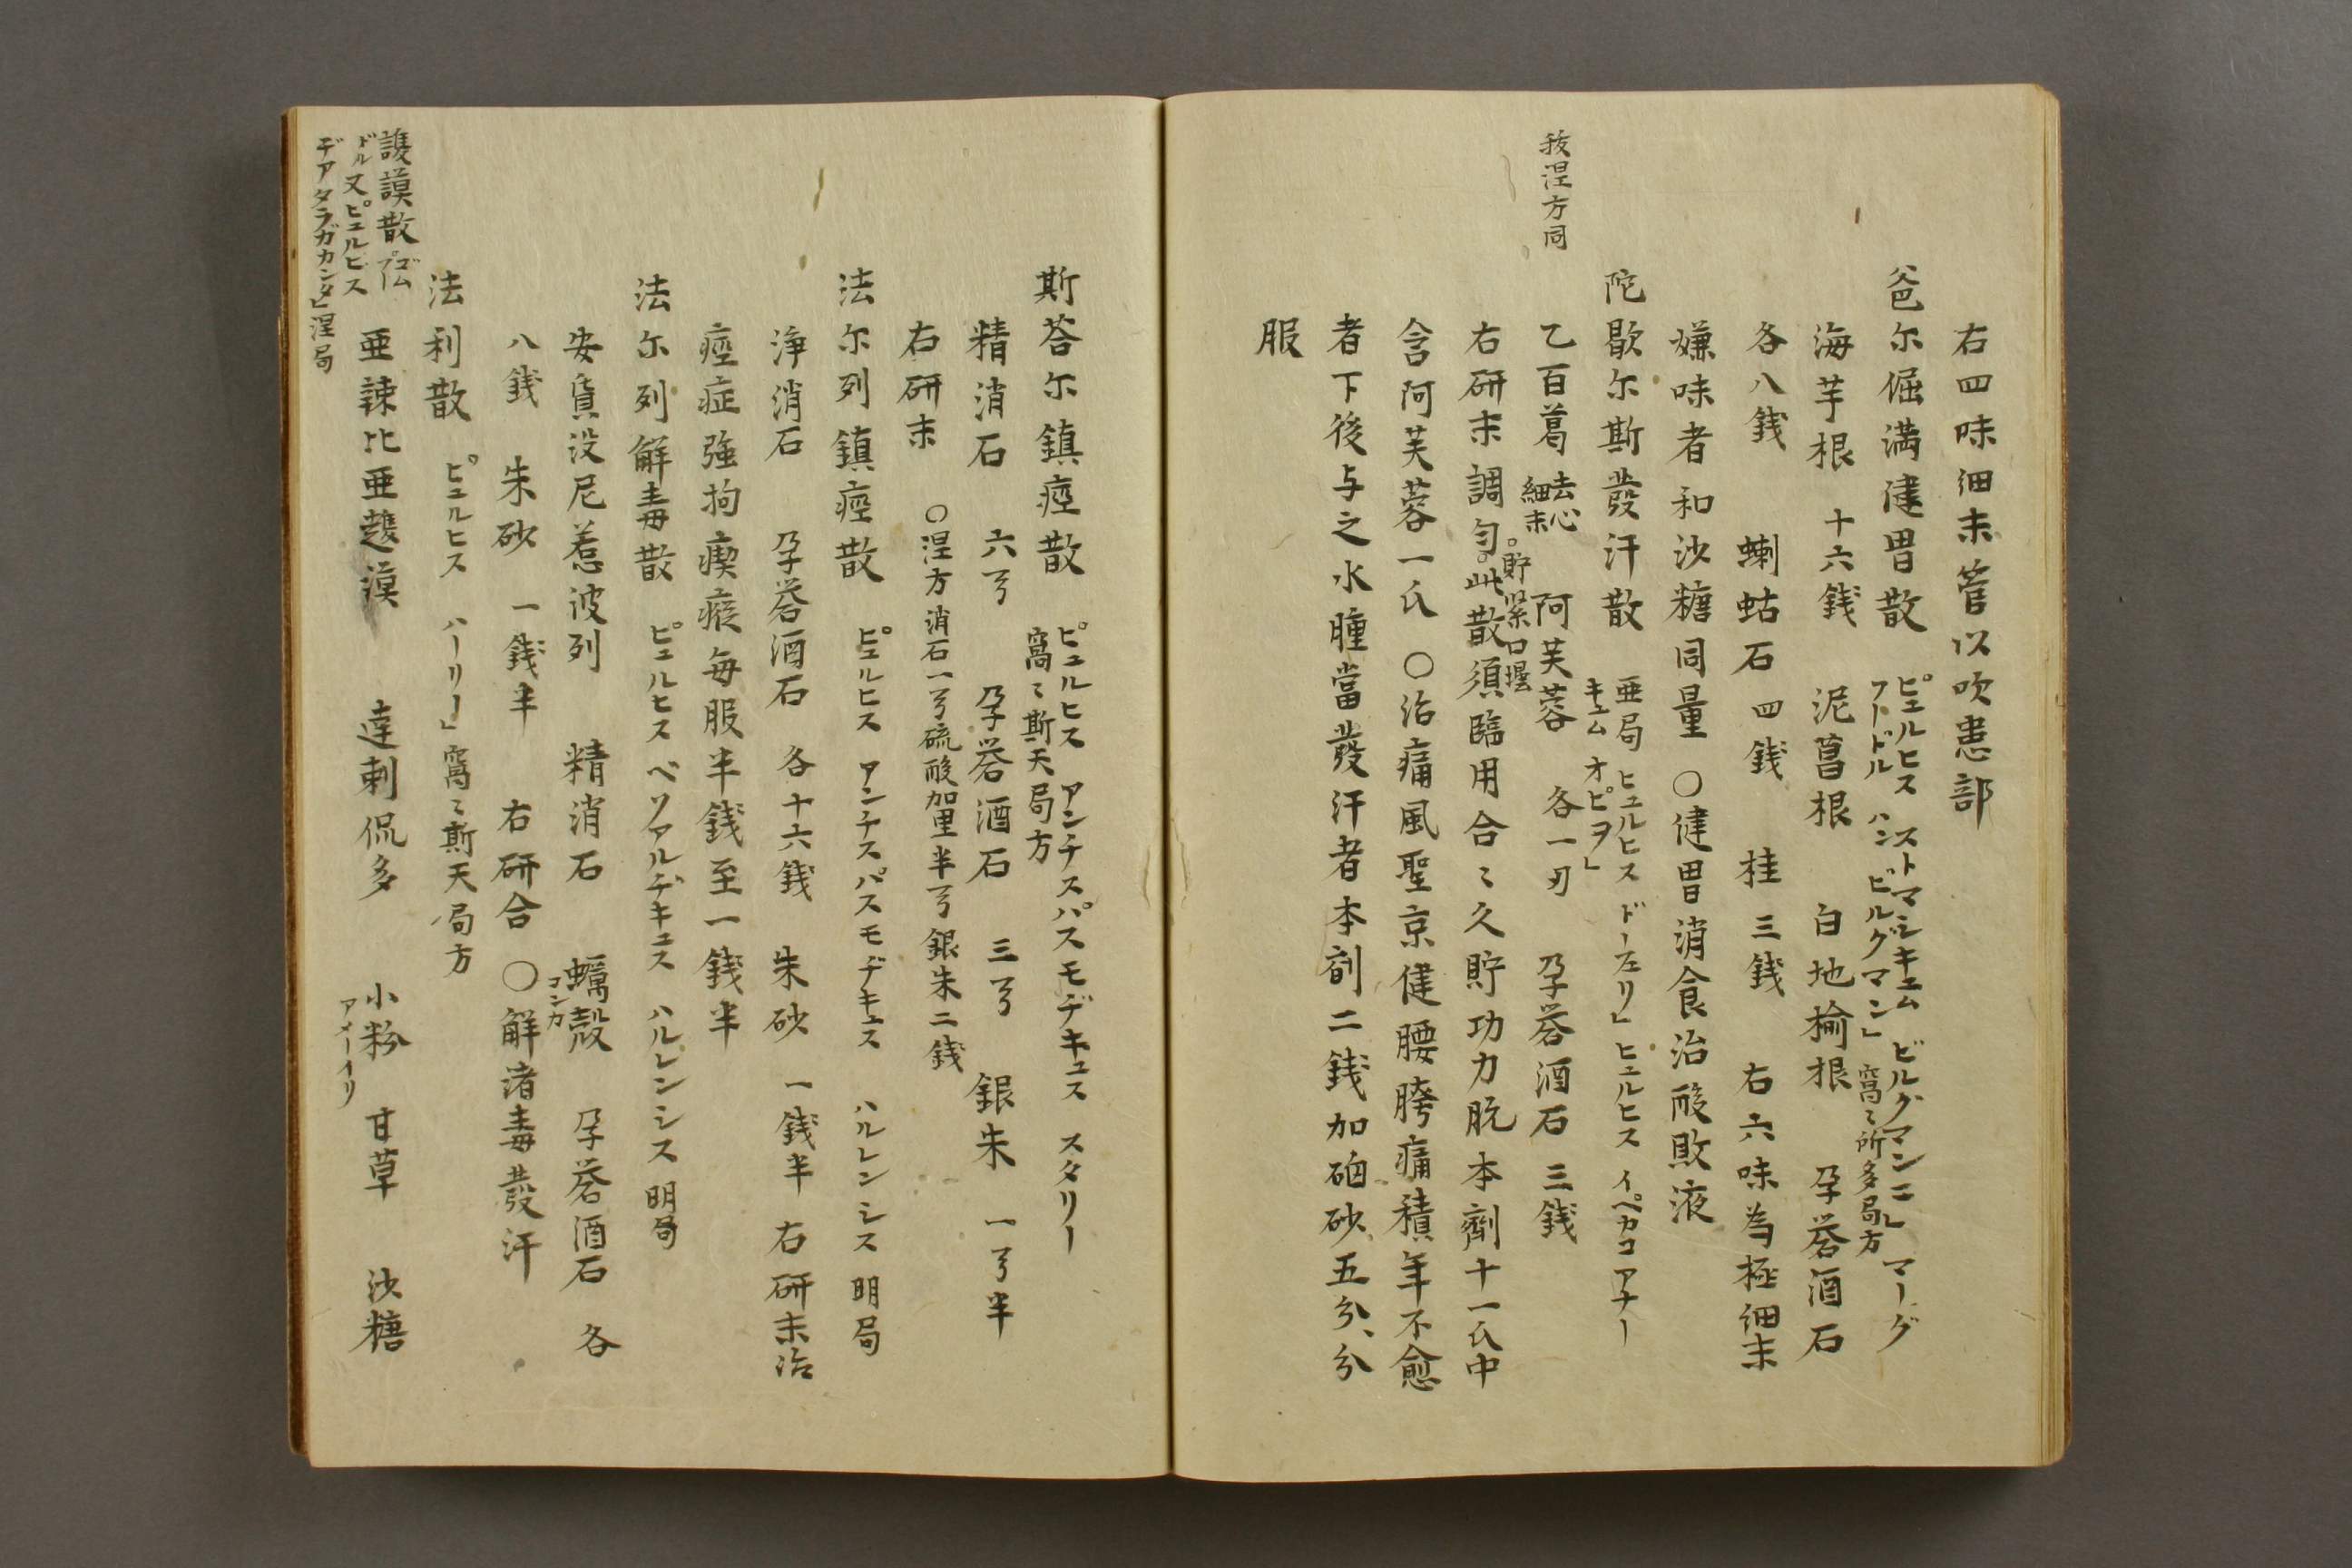 右四味細末管以吹患部
爸尓倔満健胃散 ピュルヒス ストマシキュム ビルグマンニ」 マーグ
フードル ハン ビルグマン」 窩々所多局方
海芋根 十六銭 泥菖根 白地楡根 孕礬酒石
各八銭 蝲蛄石 四銭 桂 三銭 右六味為極細末
嫌味者和沙糖同量 〇健胃消食治酸敗液
陀歇尓斯發汗散 亜局 ヒュルヒス ドーフェリ」 ヒュルヒス イペカコアナー
キュム オピヲ」
扶涅方同
乙百葛 去心細末 阿芙蓉 各一刃 孕礬酒石 三銭
右研末調匀。此散須臨用合々久貯功力脱本劑十一氏中
。貯緊口壜
含阿芙蓉一氏 〇治痛風聖京健腰胯痛積年不愈
者下後与之水腫當發汗者本剤二銭加硇砂五分、分
服
斯荅尓鎮痙散 ピュルヒス アンチスパスモヂキュス スタリー
窩々斯天局方
精消石 六弓 孕礬酒石 三弓 銀朱 一弓半
右研末 〇涅方消石一弓硫酸加里半弓銀朱二銭
法尓列鎮痙散 ピュルヒス アンチスパスモヂキュス ハルレンシス 明局
浄消石 孕礬酒石 各十六銭 朱砂 一銭半 右研末治
痙症強拘瘈瘲毎服半銭至一銭半
法尓列解毒散 ピュルヒス ベソアルデキュス ハルレンシス 明局
安質没尼惹波列 精消石 蠣殻 コンカ 孕礬酒石 各
八銭 朱砂 一銭半 右研合 〇解諸毒發汗
法利散 ピュルヒス ハーリー」 窩々斯天局方
謢謨散 ゴムプードル又ピュルビス
デアタラガカンタ」涅局
亜辣比亜謢謨 達剌侃多 小粉 アメーイリ 甘草 沙糖